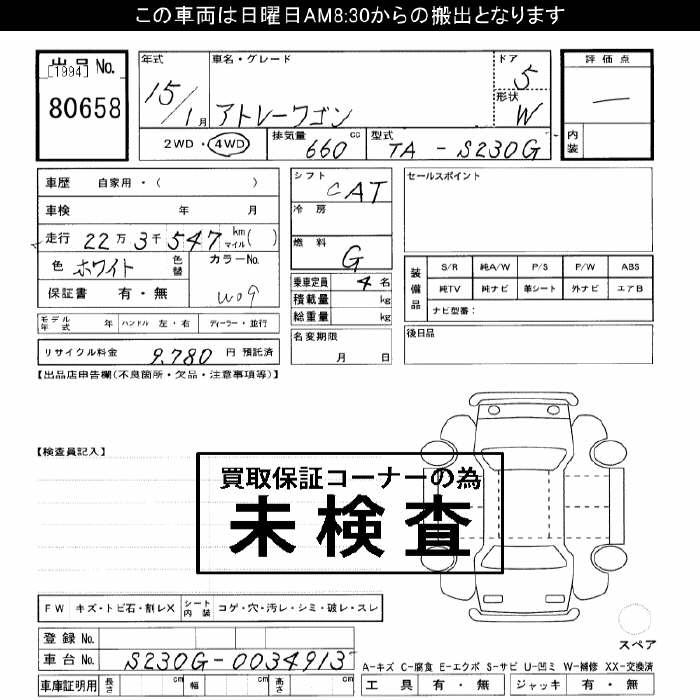 この車両は日曜日AM8:30からの搬出となります
出品No.
[1994]
80658
年式
15/1月
車名・グレード
アトレーワゴン
ドア
5
形状
W
評価点
―
内装
2WD・4WD
排気量
660 cc
型式
TA - S230G
車歴 自家用・( )
車検 年 月
走行 22万3千547 km マイル( )
色 ホワイト 色替
カラーNo.
W09
保証書 有・無
シフト
CAT
冷房
燃料
G
乗車定員 4名
積載量 kg
総重量 kg
名変期限
月 日
セールスポイント
装備品
S/R 純A/W P/S P/W ABS
純TV 純ナビ 革シート 外ナビ エアB
ナビ型番:
後日品
モデル年式 年 ハンドル 左・右 ディーラー・並行
リサイクル料金 9,780 円 預託済
【出品店申告欄(不良箇所・欠品・注意事項等)】
【検査員記入】
買取保証コーナーの為
未検査
FW キズ・トビ石・割レX シート内装 コゲ・穴・汚レ・シミ・破レ・スレ
登録No.
車台No. S230G-0034913
車庫証明用 長さ cm 幅 cm 高さ cm
スペア
A-キズ C-腐食 E-エクボ S-サビ U-凹ミ W-補修 XX-交換済
工具 有・無 ジャッキ 有・無